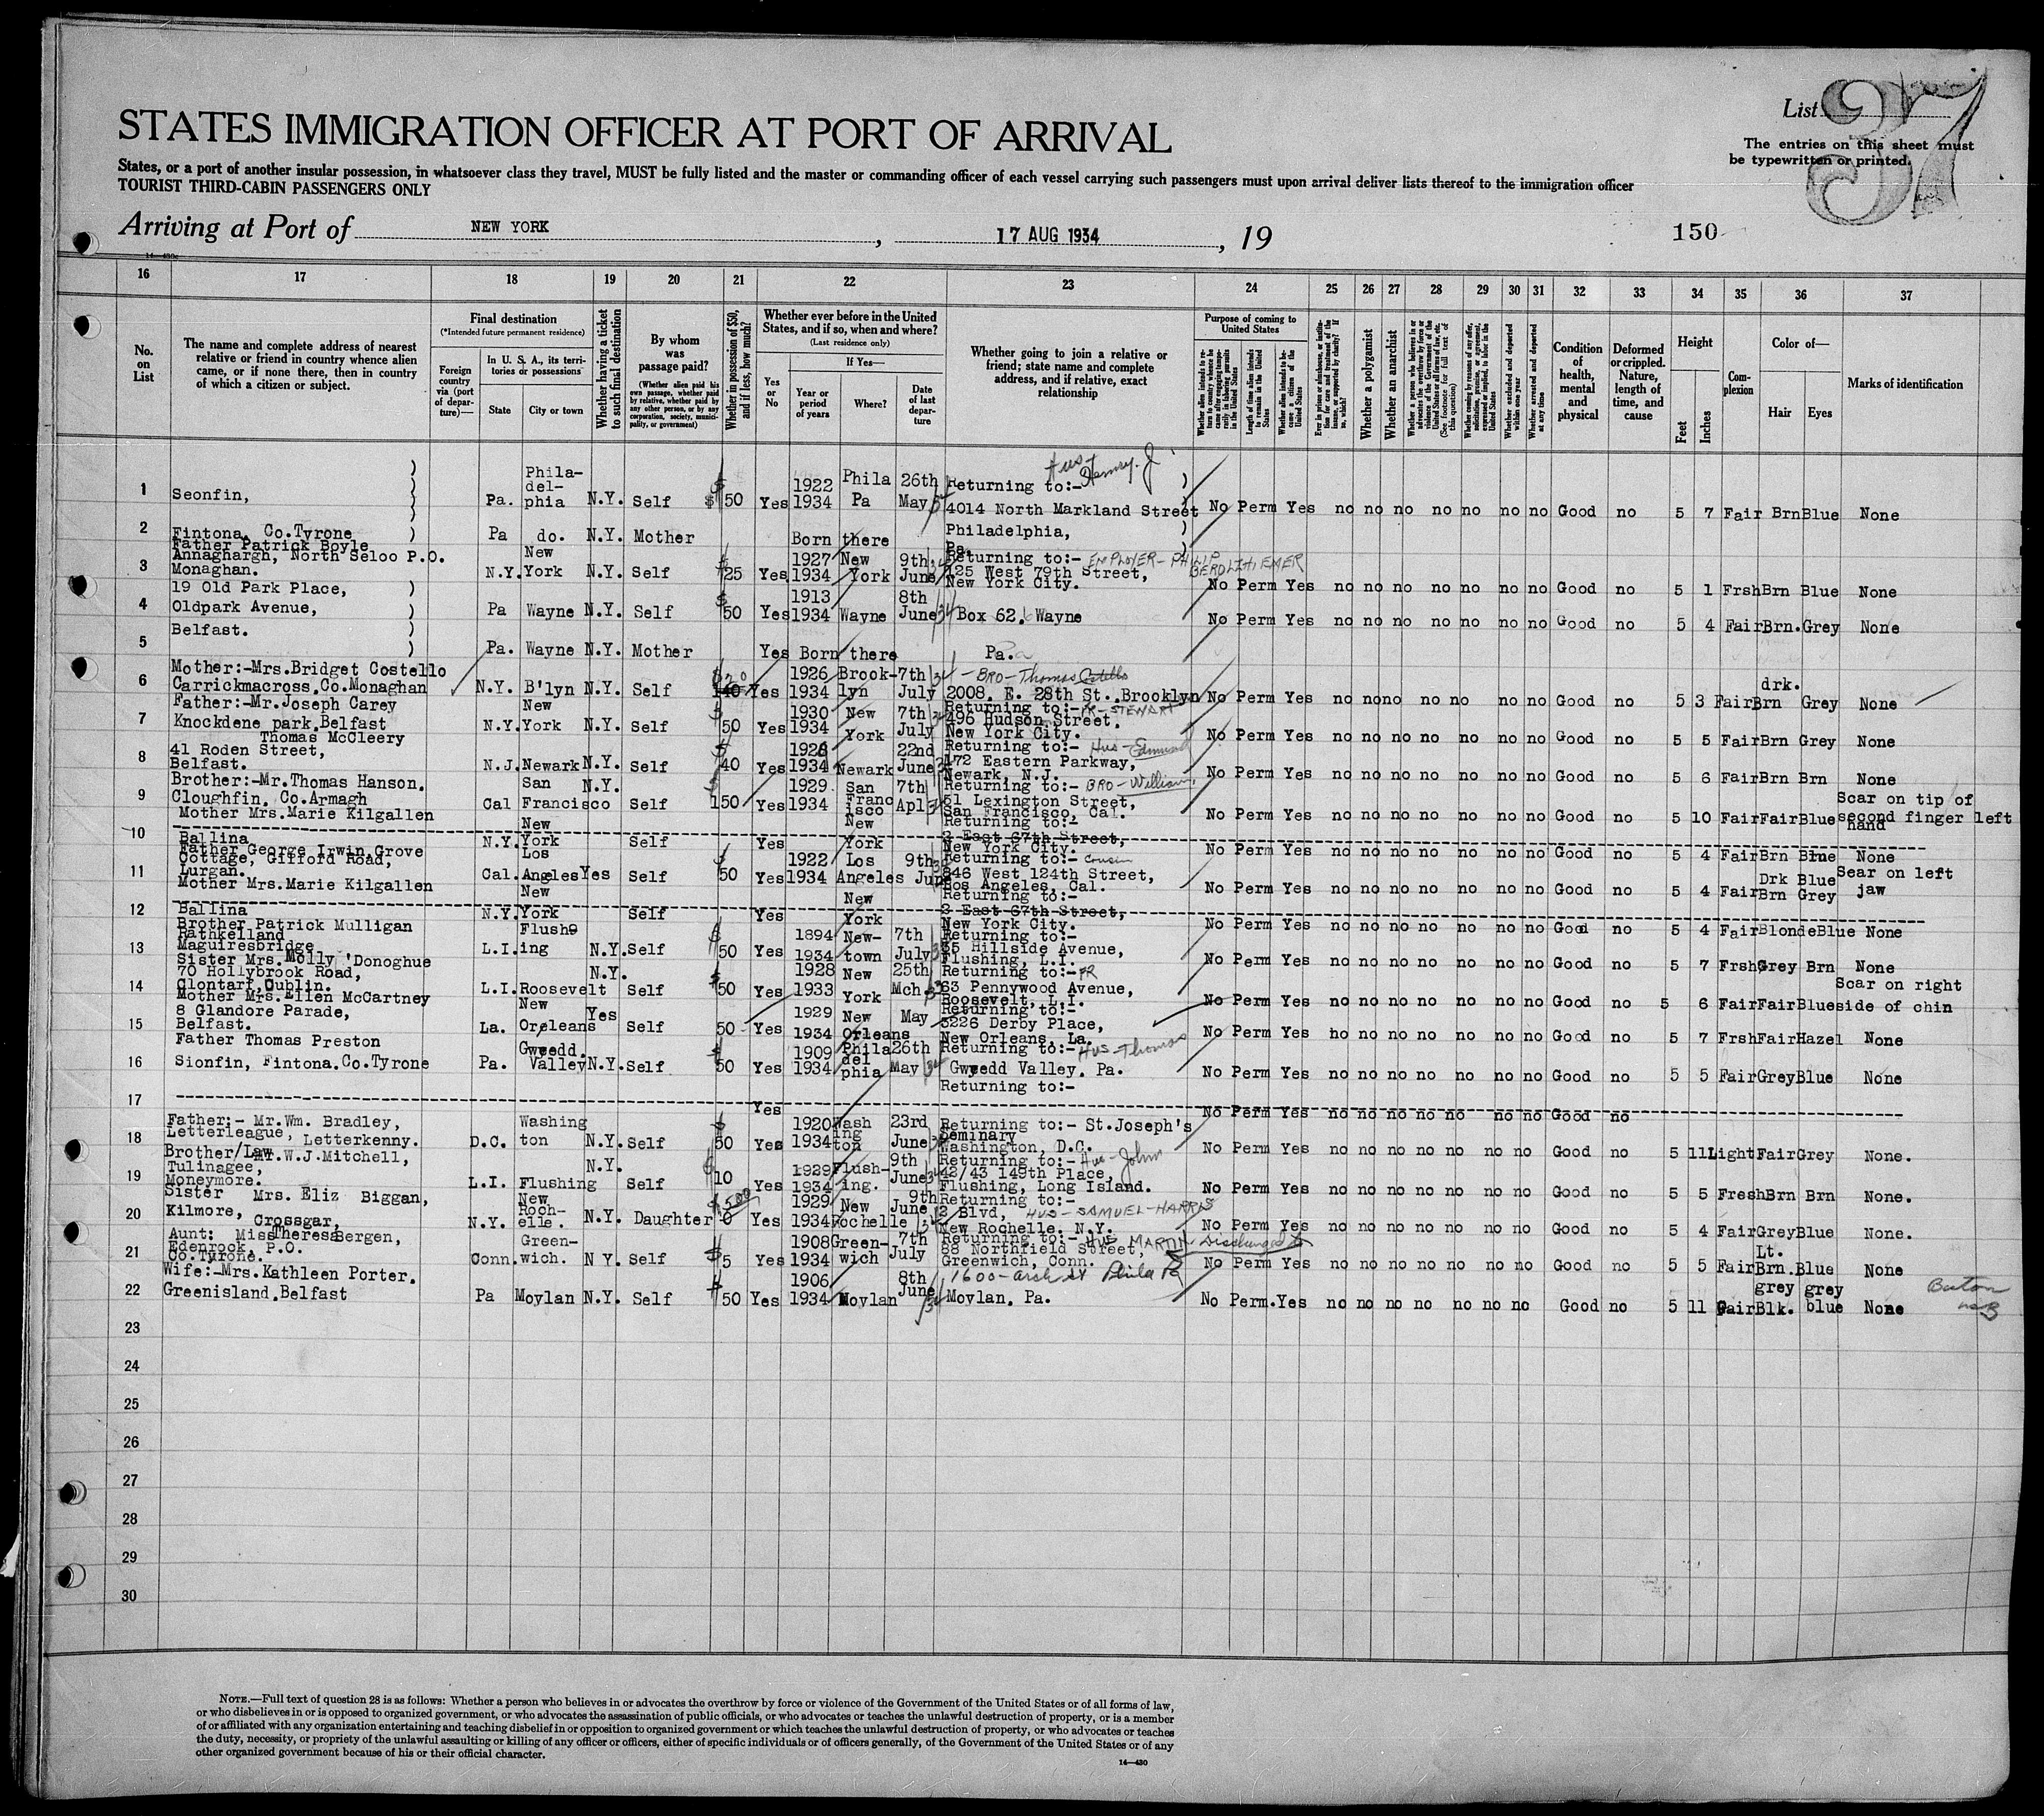 List 37
STATES IMMIGRATION OFFICER AT PORT OF ARRIVAL
The entries on this sheet must
be typewritten or printed.
States, or a port of another insular possession, in whatsoever class they travel, MUST be fully listed and the master or commanding officer of each vessel carrying such passengers must upon arrival deliver lists thereof to the immigration officer
TOURIST THIRD-CABIN PASSENGERS ONLY
Arriving at Port of NEW YORK, 17 AUG 1934, 19
150
16 17 18 19 20 21 22 23 24 25 26 27 28 29 30 31 32 33 34 35 36 37
No. on List
The name and complete address of nearest relative or friend in country whence alien came, or if none there, then in country of which a citizen or subject.
Final destination
(*Intended future permanent residence)
Foreign country via (port of departure)—
In U. S. A., its territories or possessions
State
City or town
Whether having a ticket to such final destination
By whom was passage paid?
(Whether alien paid his own passage, whether paid by relative, whether paid by any other person, or by any corporation, society, municipality, or government)
Whether in possession of $50, and if less, how much?
Whether ever before in the United States, and if so, when and where?
(Last residence only)
Yes or No
If Yes—
Year or period of years
Where?
Date of last departure
Whether going to join a relative or friend; state name and complete address, and if relative, exact relationship
Purpose of coming to United States
Length of time alien intends to remain in the United States
Whether alien intends to become a citizen of the United States
Whether a polygamist
Whether an anarchist
Whether a person who believes in or advocates the overthrow by force or violence of the Government of the United States or all forms of law, etc. (See footnote for full text of this question)
Whether excluded and deported within one year
Whether arrested and deported at any time
Condition of health, mental and physical
Deformed or crippled. Nature, length of time, and cause
Height
Feet
Inches
Complexion
Color of—
Hair
Eyes
Marks of identification
1 Seonfin, Pa. Phila-del-phia N.Y. Self $50 Yes 1922 1934 Phila Pa 26th May Returning to:- Hus Henry. J 4014 North Markland Street No Perm Yes no no no no no no no Good no 5 7 Fair Brn Blue None
2 Fintona, Co.Tyrone Pa do. N.Y. Mother Born there Philadelphia, Pa.
3 Father Patrick Boyle Annaghargh, North Seloo P.O. Monaghan. N.Y. New York N.Y. Self 25 Yes 1927 1934 New York 9th June Returning to:- EMPLOYER - PHILIP 125 West 79th Street, New York City. No Perm Yes no no no no no no no Good no 5 1 Frsh Brn Blue None
4 19 Old Park Place, Oldpark Avenue, Pa Wayne N.Y. Self 50 Yes 1913 1934 Wayne 8th June Box 62. Wayne No Perm Yes no no no no no no no Good no 5 4 Fair Brn. Grey None
5 Belfast. Pa. Wayne N.Y. Mother Yes Born there Pa.
6 Mother:-Mrs.Bridget Costello Carrickmacross.Co.Monaghan N.Y. B'lyn N.Y. Self Yes 1926 1934 Brooklyn 7th July BRO-Thomas Costello 2008. E. 28th St. Brooklyn No Perm Yes no no no no no no no Good no 5 3 Fair drk. Brn Grey None
7 Father:-Mr.Joseph Carey Knockdene park.Belfast N.Y. New York N.Y. Self 50 Yes 1930 1934 New York 7th July Returning to:- FR-STEWART 496 Hudson Street. New York City. No Perm Yes no no no no no no no Good no 5 5 Fair Brn Grey None
8 Thomas McCleery 41 Roden Street, Belfast. N.J. Newark N.Y. Self 40 Yes 1928 1934 Newark 22nd June Returning to:- Hus-Edmund 172 Eastern Parkway, Newark, N.J. No Perm Yes no no no no no no no Good no 5 6 Fair Brn Brn None
9 Brother:-Mr.Thomas Hanson. Cloughfin. Co.Armagh Cal San Francisco N.Y. Self 150 Yes 1929 1934 San Francisco 7th Apl Returning to:- BRO-William, 61 Lexington Street, San Francisco, Cal. No Perm Yes no no no no no no no Good no 5 10 Fair Fair Blue Scar on tip of second finger left hand
10 Mother Mrs.Marie Kilgallen Ballina N.Y. New York Self Yes New York Returning to:- 2 East 67th Street, New York City. No Perm Yes no no no no no no no Good no 5 4 Fair Brn Blue None
11 Father George Irwin Grove Cottage, Gifford Road, Lurgan. Cal. Los Angles Yes Self 50 Yes 1922 1934 Los Angeles 9th June Returning to:- cousin 846 West 124th Street, Los Angeles, Cal. No Perm Yes no no no no no no no Good no 5 4 Fair Drk Brn Blue Grey Scar on left jaw
12 Mother Mrs.Marie Kilgallen Ballina N.Y. New York Self Yes New York Returning to:- 2 East 67th Street, New York City. No Perm Yes no no no no no no no Good no 5 4 Fair Blonde Blue None
13 Brother Patrick Mulligan Rathkelland Maguiresbridge L.I. Flushing N.Y. Self 50 Yes 1894 1934 New-town 7th July Returning to:- 35 Hillside Avenue, Flushing, L.I. No Perm Yes no no no no no no no Good no 5 7 Frsh Grey Brn None
14 Sister Mrs.Molly 'Donoghue 70 Hollybrook Road, Clontarf,Dublin. L.I. Roosevelt N.Y. Self 50 Yes 1928 1933 New York 25th Mch Returning to:- FR 63 Pennywood Avenue, Roosevelt, L.I. No Perm Yes no no no no no no no Good no 5 6 Fair Fair Blue Scar on right side of chin
15 Mother Mrs.Ellen McCartney 8 Glandore Parade, Belfast. La. New Orleans Yes Self 50 Yes 1929 1934 New Orleans May Returning to:- 3226 Derby Place, New Orleans, La. No Perm Yes no no no no no no no Good no 5 7 Frsh Fair Hazel None
16 Father Thomas Preston Sionfin, Fintona.Co.Tyrone Pa. Gwyedd. Valley N.Y. Self 50 Yes 1909 1934 Philadelphia 26th May Returning to:- Hus-Thomas Gwyedd Valley. Pa. No Perm Yes no no no no no no no Good no 5 5 Fair Grey Blue None
17 Yes Returning to:- No Perm Yes no no no no no no no Good no
18 Father:- Mr.Wm. Bradley, Letterleague, Letterkenny. D.C. Washington N.Y. Self 50 Yes 1920 1934 Washington 23rd June Returning to:- St.Joseph's Seminary Washington, D.C. No Perm Yes no no no no no no no Good no 5 11 Light Fair Grey None.
19 Brother/Law Mr.W.J.Mitchell, Tulinagee, Moneymore. L.I. Flushing N.Y. Self 10 Yes 1929 1934 Flush-ing. 9th June Returning to:- Hus-John 42/43 149th Place, Flushing, Long Island. No Perm Yes no no no no no no no Good no 5 5 Fresh Brn Brn None.
20 Sister Mrs. Eliz Biggan, Kilmore, Crossgar, N.Y. New Roch-elle. N.Y. Daughter 0 $500 Yes 1929 1934 New Rochelle 9th June Returning to:- 2 Blvd, HUS-SAMUEL-HARRIS New Rochelle. N.Y. No Perm Yes no no no no no no no Good no 5 4 Fair Grey Blue None.
21 Aunt: Miss Theresa Bergen, Edenrock, P.O. Co.Tyrone. Conn. Green-wich. N Y. Self $5 Yes 1908 1934 Green-wich 7th July Returning to:- HUS MARTIN Discharged 88 Northfield Street, Greenwich, Conn. No Perm Yes no no no no no no no Good no 5 5 Fair Lt. Brn. Blue None
22 Wife:-Mrs.Kathleen Porter. Greenisland.Belfast Pa Moylan N.Y. Self 50 Yes 1906 1934 Moylan 8th June 1600-arch st Phila Pa Moylan. Pa. No Perm. Yes no no no no no no no Good no 5 11 Fair grey Blk. grey blue None
23
24
25
26
27
28
29
30
NOTE.—Full text of question 28 is as follows: Whether a person who believes in or advocates the overthrow by force or violence of the Government of the United States or of all forms of law,
or who disbelieves in or is opposed to organized government, or who advocates the assassination of public officials, or who advocates or teaches the unlawful destruction of property, or is a member
of or affiliated with any organization entertaining and teaching disbelief in or opposition to organized government or which teaches the unlawful destruction of property, or who advocates or teaches
the duty, necessity, or propriety of the unlawful assaulting or killing of any officer or officers, either of specific individuals or of officers generally, of the Government of the United States or of any
other organized government because of his or their official character.
14—430